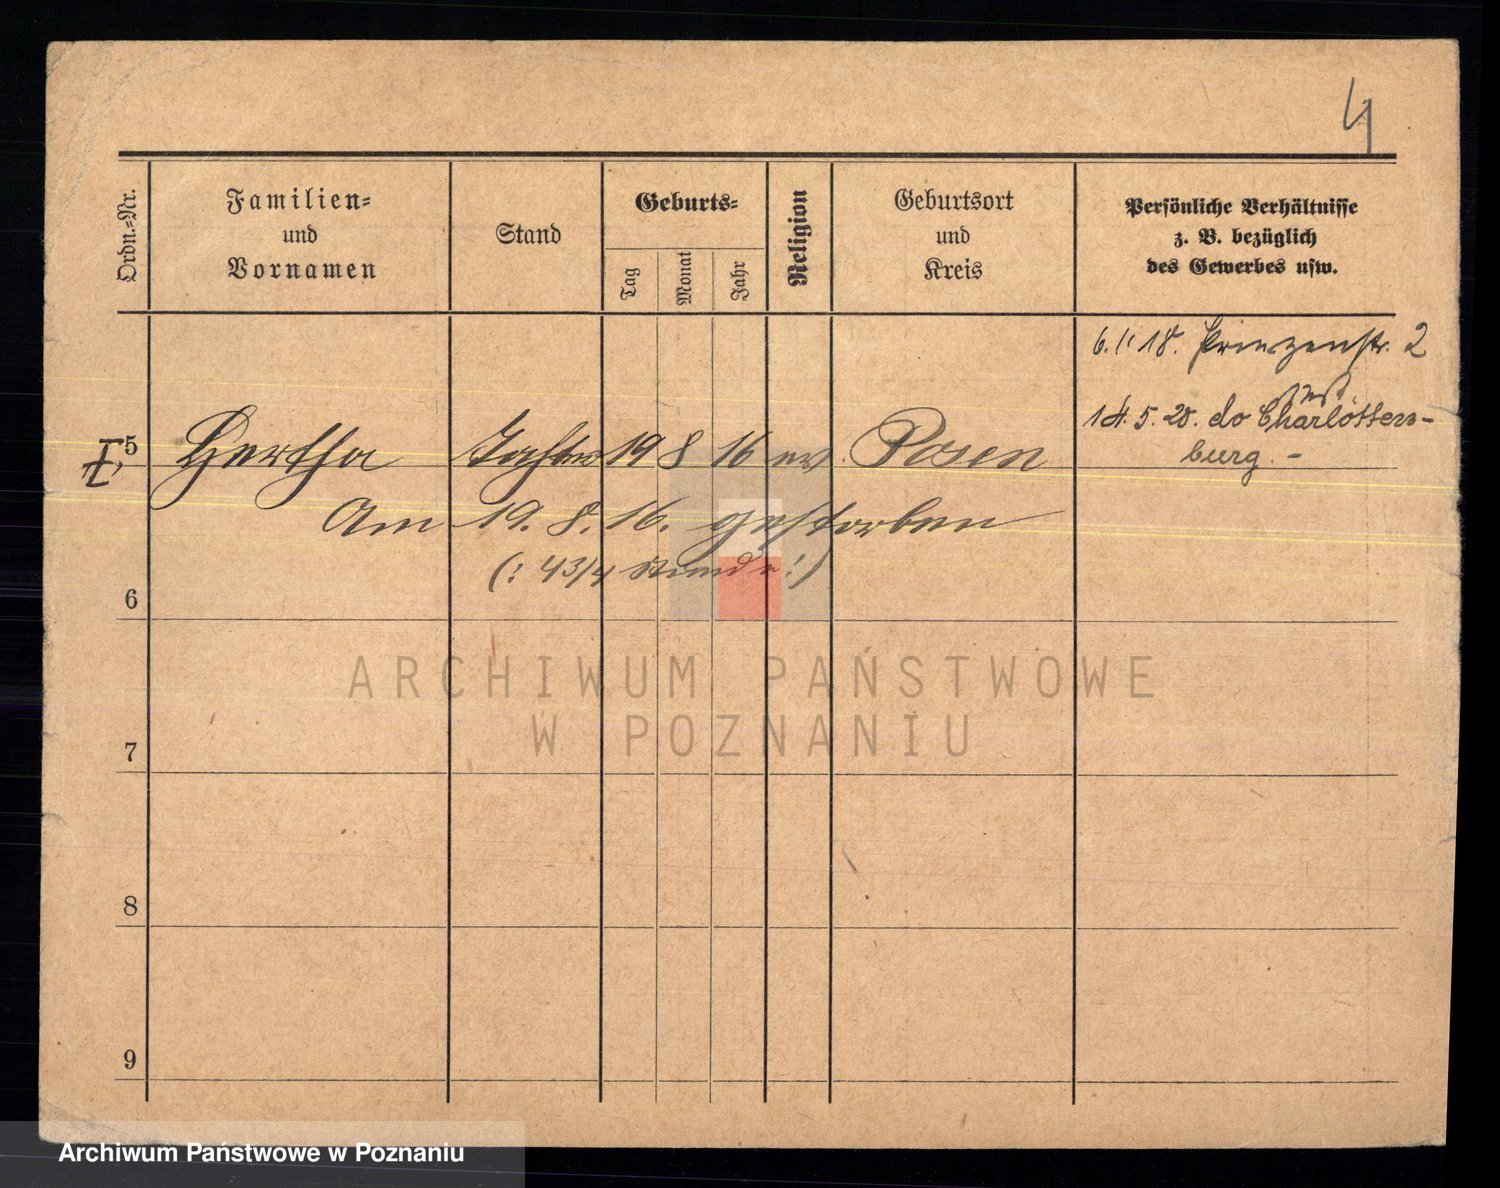 4
Ordn.-Nr.
Familien-
und
Vornamen
Stand
Geburts-
Tag
Monat
Jahr
Religion
Geburtsort
und
Kreis
Persönliche Verhältnisse
z. B. bezüglich
des Gewerbes usw.
6. 1. 18. Prinzenstr. 2
14. 5. 20. do Charlotten-
burg. -
5 Hertha Tochter 19 8 16 ev. Posen
Am 19. 8. 16. gestorben
(: 4 3/4 Stunde :)
6
ARCHIWUM PAŃSTWOWE
W POZNANIU
7
8
9
Archiwum Państwowe w Poznaniu